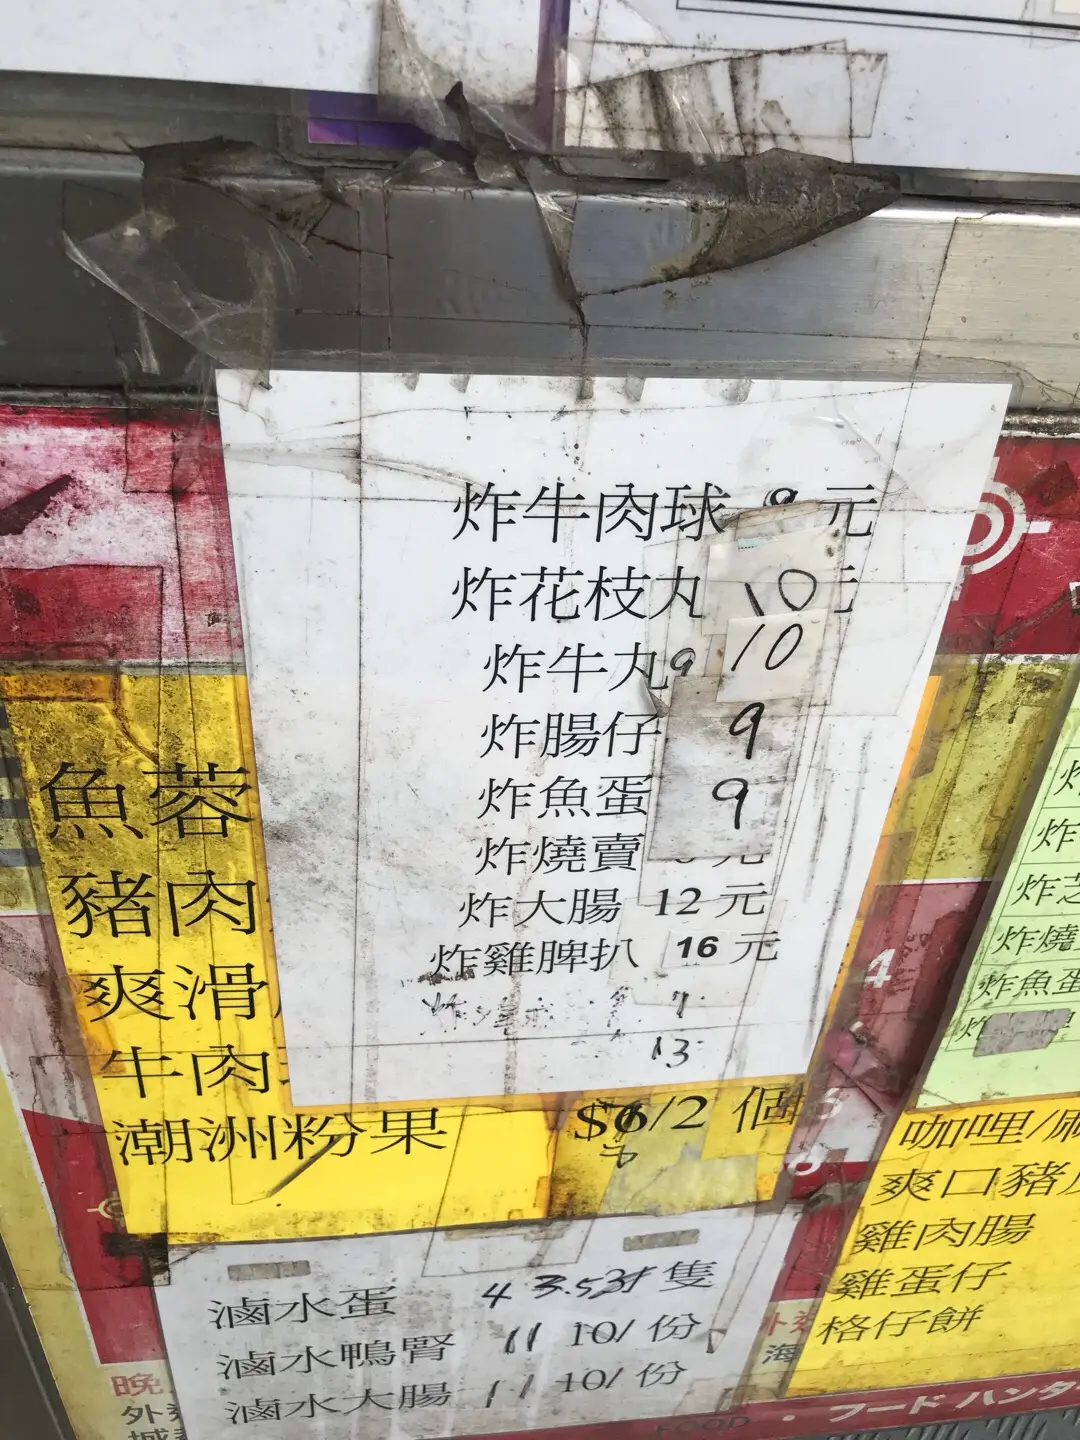 炸牛肉球 9 元
炸花枝丸 10 元
炸牛丸 9 10
炸腸仔 9
炸魚蛋 9
炸燒賣 元
炸大腸 12 元
炸雞脾扒 16 元
7
13
魚蓉
豬肉
爽滑
牛肉
潮洲粉果 $6/2 個
滷水蛋 4 3.5 隻
滷水鴨腎 11 10/ 份
滷水大腸 11 10/ 份
4
5
炸
炸
炸芝
炸燒
炸魚蛋
炸
咖哩/
爽口豬
雞肉腸
雞蛋仔
格仔餅
晚
外
海
FOOD · フードハンタ